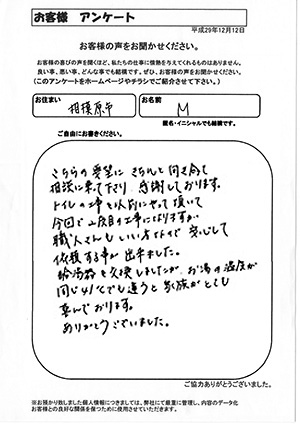 お客様 アンケート
平成29年12月12日
お客様の声をお聞かせください。
お客様の喜びの声を聞くほど、私たちの仕事に情熱を与えてくれるものはありません。
良い事、悪い事、どんな事でも結構です。ぜひ、お客様の声をお聞かせください。
(このアンケートをホームページやチラシでご紹介させて下さい。)
お住まい
相模原市
お名前
M
匿名・イニシャルでも結構です。
ご自由にお書きください。
こちらの要望に きちんと向き合って
相談に乗って下さり 感謝しております。
トイレの工事を以前にやって頂いて
今回で2度目の工事になりますが
職人さんも いい方なので 安心して
依頼する事が出来ました。
給湯器を交換しましたが、お湯の温度が
同じ41℃でも違うと家族がとても
喜んでおります。
ありがとうございました。
ご協力ありがとうございました。
※お預かり致しました個人情報につきましては、弊社にて厳重に管理し、内容のデータ化
お客様との良好な関係を保つために使用させていただきます。